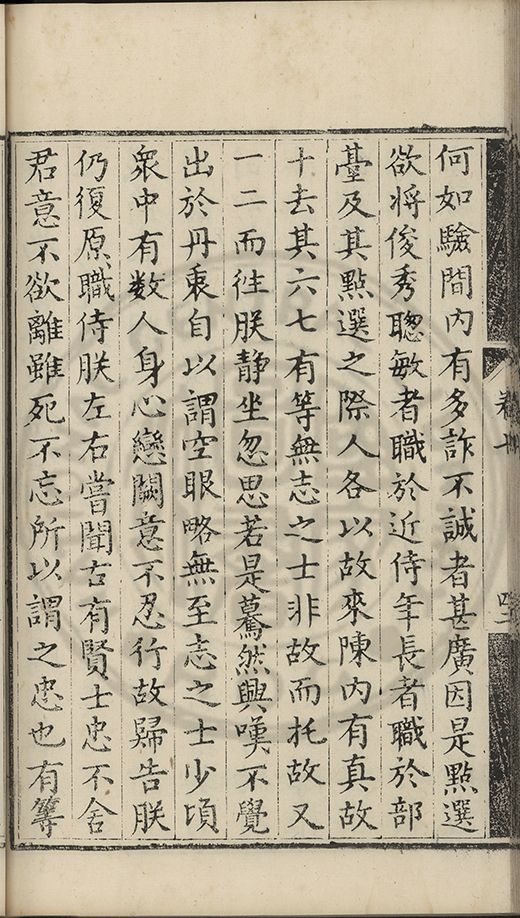 何如驗間内有多詐不誠者甚廣因是點選
欲將俊秀聰敏者職於近侍年長者職於部
臺及其點選之際人各以故來陳内有真故
十去其六七有等無志之士非故而托故又
一二而徃朕静坐忽思若是驀然興嘆不覺
出於丹衷自以謂空眼略無至志之士少頃
衆中有数人身心戀闕意不忍行故歸告朕
仍復原職侍朕左右嘗聞古有賢士忠不舍
君意不欲離雖死不忘所以謂之忠也有等